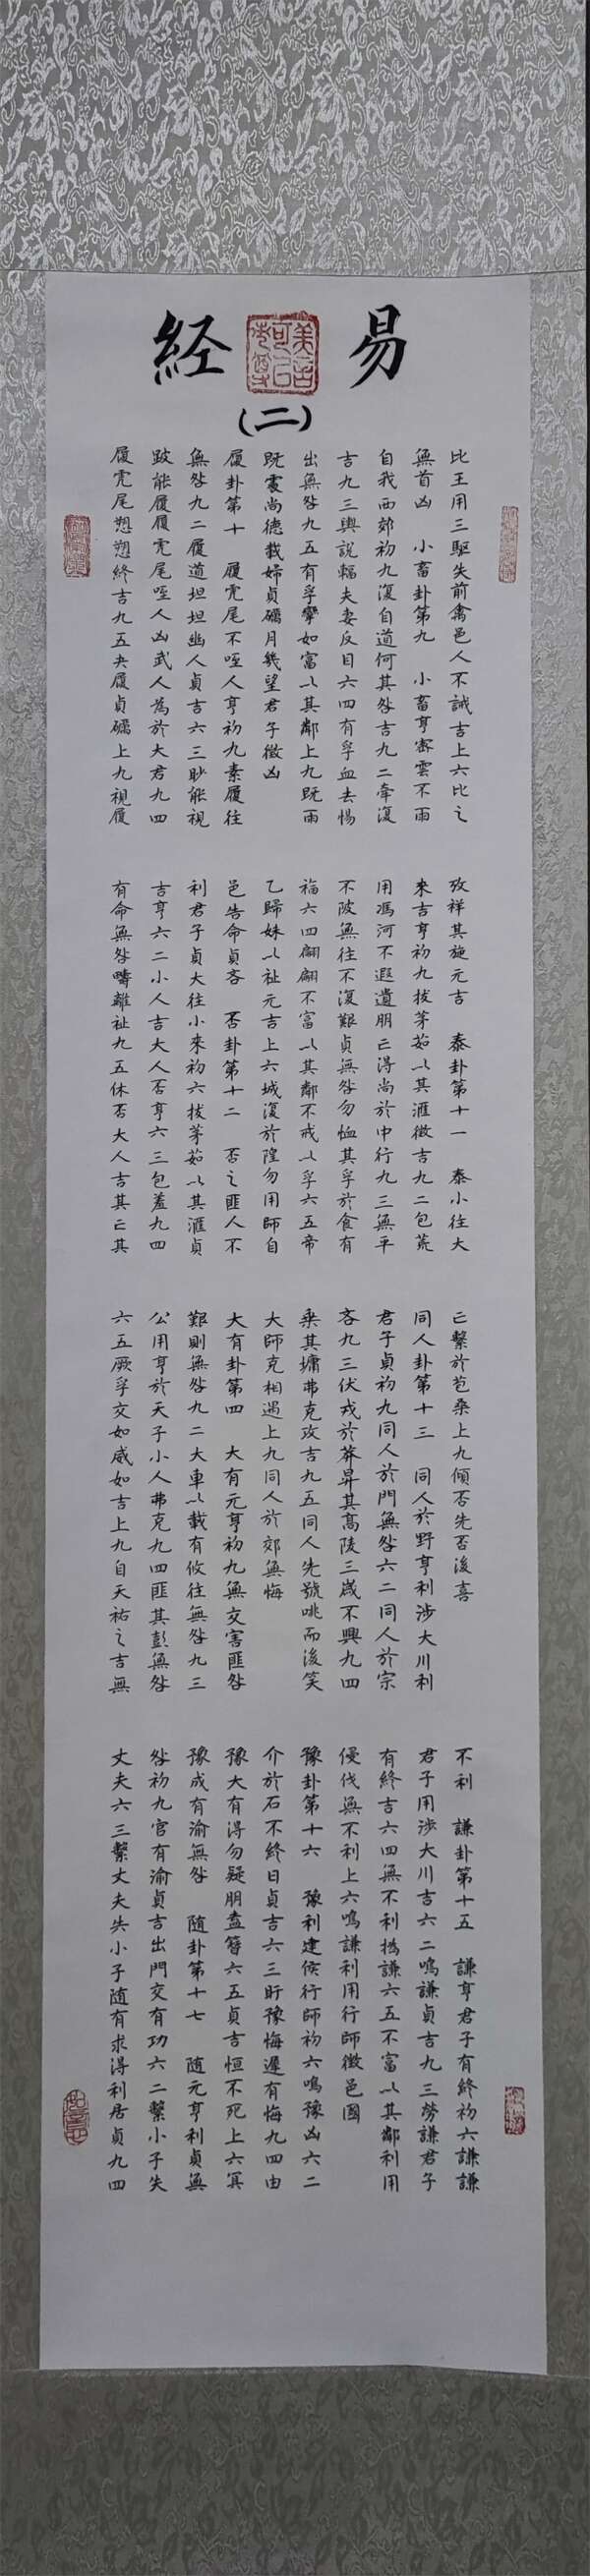 易經
(二)
比王用三驅失前禽邑人不誡吉上六比之
無首凶 小畜卦第九 小畜亨密雲不雨
自我西郊初九復自道何其咎吉九二牽復
吉九三輿說輻夫妻反目六四有孚血去惕
出無咎九五有孚攣如富以其鄰上九既雨
既處尚德載婦貞礪月幾望君子徵凶
履卦第十 履虎尾不咥人亨初九素履往
無咎九二履道坦坦幽人貞吉六三眇能視
跛能履履虎尾咥人凶武人為於大君九四
履虎尾愬愬終吉九五夬履貞礪上九視履
攷祥其旋元吉 泰卦第十一 泰小往大
來吉亨初九拔茅茹以其滙徵吉九二包荒
用馮河不遐遺朋亡得尚於中行九三無平
不陂無往不復艱貞無咎勿恤其孚於食有
福六四翩翩不富以其鄰不戒以孚六五帝
乙歸妹以祉元吉上六城復於隍勿用師自
邑告命貞吝 否卦第十二 否之匪人不
利君子貞大往小來初六拔茅茹以其滙貞
吉亨六二小人吉大人否亨六三包羞九四
有命無咎疇離祉九五休否大人吉其亡其
亡繫於苞桑上九傾否先否後喜
同人卦第十三 同人於野亨利涉大川利
君子貞初九同人於門無咎六二同人於宗
吝九三伏戎於莽昇其高陵三歲不興九四
乘其墉弗克攻吉九五同人先號咷而後笑
大師克相遇上九同人於郊無悔
大有卦第四 大有元亨初九無交害匪咎
艱則無咎九二大車以載有攸往無咎九三
公用亨於天子小人弗克九四匪其彭無咎
六五厥孚交如威如吉上九自天祐之吉無
不利 謙卦第十五 謙亨君子有終初六謙謙
君子用涉大川吉六二鳴謙貞吉九三勞謙君子
有終吉六四無不利撝謙六五不富以其鄰利用
侵伐無不利上六鳴謙利用行師徵邑國
豫卦第十六 豫利建侯行師初六鳴豫凶六二
介於石不終日貞吉六三盱豫悔遲有悔九四由
豫大有得勿疑朋盍簪六五貞吉恒不死上六冥
豫成有渝無咎 隨卦第十七 随元亨利貞無
咎初九官有渝貞吉出門交有功六二繫小子失
丈夫六三繫丈夫失小子随有求得利居貞九四